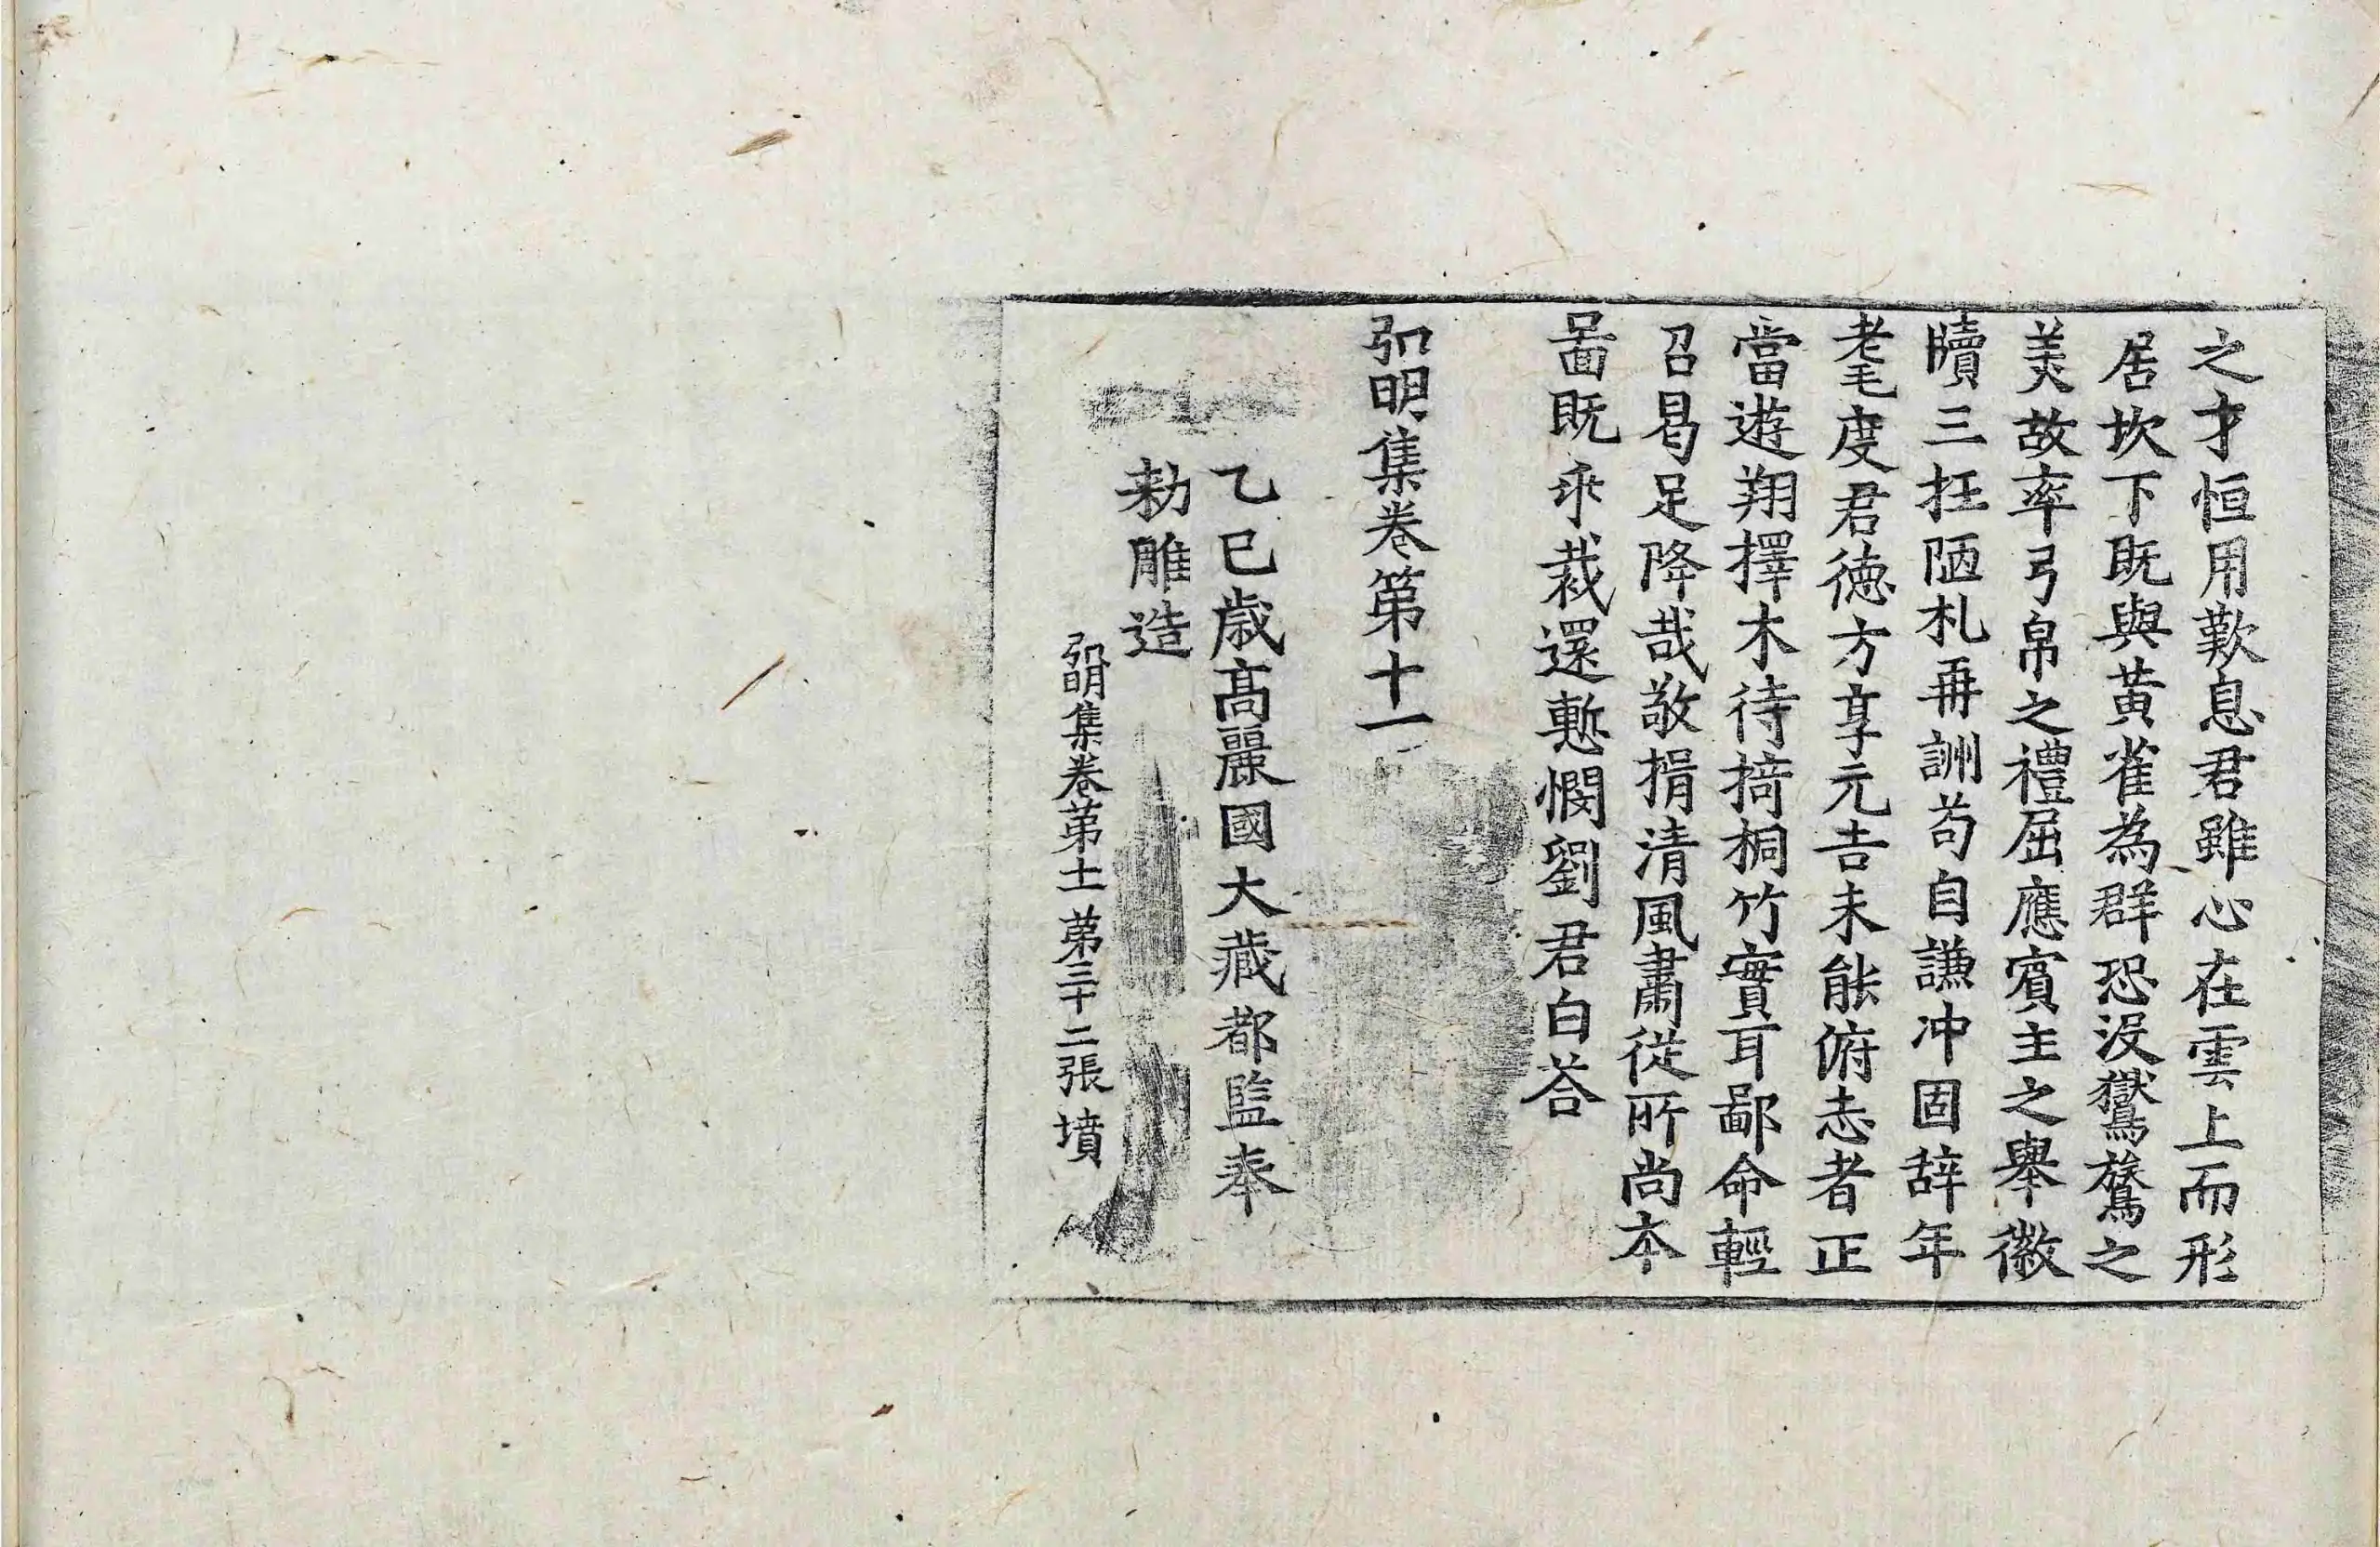 之才恒用歎息君雖心在雲上而形
居坎下既與黃雀為群恐没鸑鷟之
美故率弓帛之禮屈應賓主之舉徽
牘三抂陋札再訓苟自謙冲固辞年
耄度君德方享元吉未能俯志者正
當遊翔擇木待掎桐竹實耳鄙命輕
召曷足降哉敬揖清風肅從所尚本
啚既乖裁還慙憫劉君白荅
弘明集卷第十一
乙巳歲高麗國大藏都監奉
勑雕造
弘明集卷苐十一 苐三十二張 墳